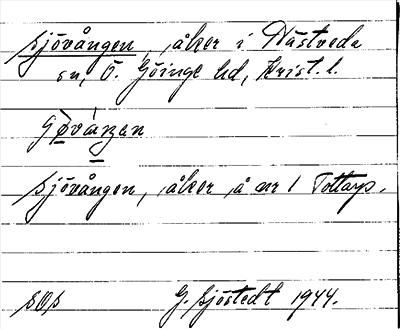 Sjövången, åker i Nästveda
sn, Ö. Göinge hd, Krist. l.
Sjövången, åker å nr 1 Tottarp.
G. Sjöstedt 1944.